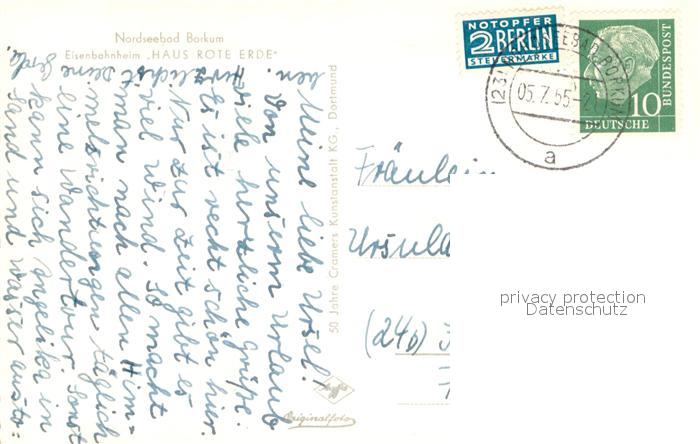 Nordseebad Borkum
Eisenbahnheim „HAUS ROTE ERDE"
NOTOPFER
2 BERLIN
STEUERMARKE
10
DEUTSCHE
BUNDESPOST
05.7.55-21
a
Meine liebe Ursel!
Von unserm Urlaub
viele herzliche Grüße.
Es ist recht schön hier.
Nur zur Zeit gibt es
viel Wind. So macht
man nach allen Him=
melsrichtungen täglich
eine Wandertour. Sonst
kann sich Angelika in
Sand und Wasser austo=
ben.
Herzlichst Deine
50 Jahre Cramers Kunstanstalt KG., Dortmund
Agfa
Originalfoto
Fräulein
Ursula
(24b)
privacy protection
Datenschutz